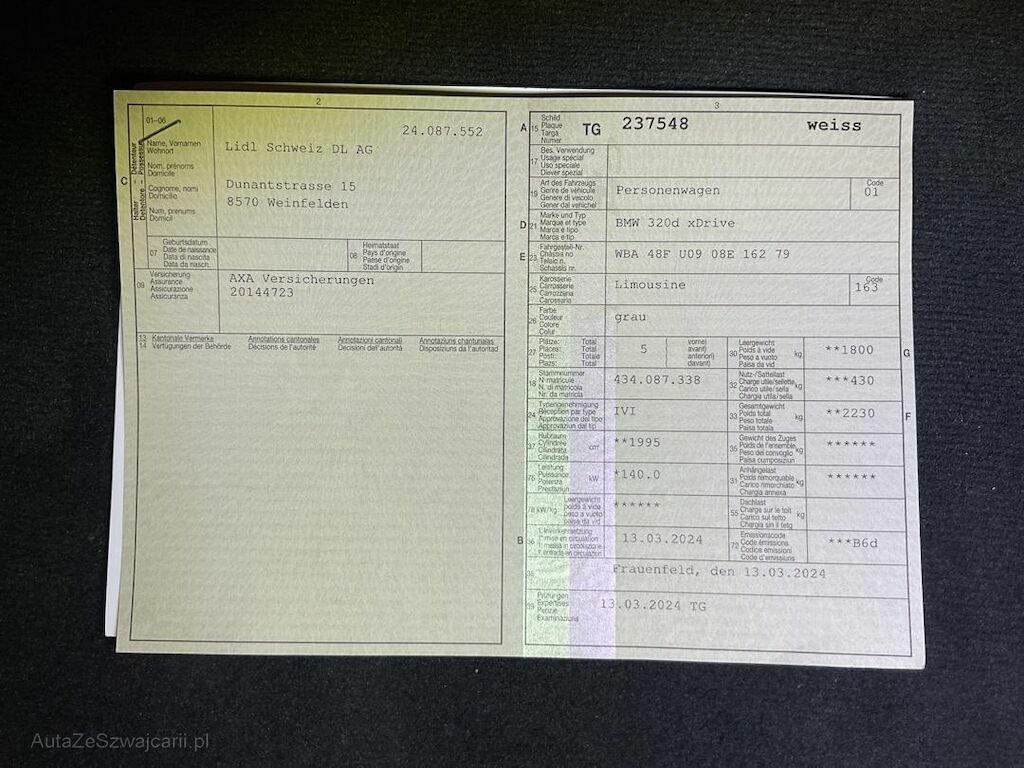 2
01-06
24.087.552
C
Halter Détenteur
Detentore - Possessur
Name, Vornamen
Wohnort
Nom, prénoms
Domicile
Cognome, nomi
Domicilio
Num, prenums
Domicil
Lidl Schweiz DL AG
Dunantstrasse 15
8570 Weinfelden
07
Geburtsdatum
Date de naissance
Data di nascita
Data da nasch.
08
Heimatstaat
Pays d'origine
Paese d'origine
Stadi d'origin
09
Versicherung
Assurance
Assicurazione
Assicuranza
AXA Versicherungen
20144723
13 Kantonale Vermerke Annotations cantonales Annotazioni cantonali Annotaziuns chantunalas
14 Verfügungen der Behörde Décisions de l'autorité Decisioni dell'autorità Disposiziuns da l'autoritad
3
A 15
Schild
Plaque
Targa
Numer
TG 237548 weiss
17
Bes. Verwendung
Usage spécial
Uso speciale
Diever spezial
19
Art des Fahrzeugs
Genre de véhicule
Genere di veicolo
Gener dal vehichel
Personenwagen
Code
01
D 21
Marke und Typ
Marque et type
Marca e tipo
Marca e tip
BMW 320d xDrive
E 23
Fahrgestell-Nr.
Châssis no
Telaio n.
Schassis nr.
WBA 48F U09 08E 162 79
25
Karosserie
Carrosserie
Carrozzeria
Carossaria
Limousine
Code
163
26
Farbe
Couleur
Colore
Colur
grau
27
Plätze: Total
Places: Total
Posti: Totale
Plazs: Total
5
(vorne)
avant)
anteriori)
davant)
30
Leergewicht
Poids à vide
Peso a vuoto
Paisa da vid
kg
**1800
G
18
Stammnummer
N° matricule
N. di matricola
Nr. da matricla
434.087.338
32
Nutz-/Sattellast
Charge utile/sellette
Carico utile/sella
Chargia utila/sella
kg
***430
24
Typengenehmigung
Réception par type
Approvazione del tipo
Approvaziun dal tip
IVI
33
Gesamtgewicht
Poids total
Peso totale
Paisa totala
kg
**2230
F
37
Hubraum
Cylindrée
Cilindrata
Cilindrada
cm³
**1995
35
Gewicht des Zuges
Poids de l'ensemble
Peso del convoglio
Paisa cumposiziun
kg
******
76
Leistung
Puissance
Potenza
Prestaziun
kW
*140.0
31
Anhängelast
Poids remorquable
Carico rimorchiato
Chargia annexa
kg
******
78 kW/kg
Leergewicht
poids à vide
peso a vuoto
paisa da vid
******
55
Dachlast
Charge sur le toit
Carico sul tetto
Chargia sin il tetg
kg
B 36
1. Inverkehrsetzung
1re mise en circulation
1a messa in circolazione
1. entrada en circulaziun
13.03.2024
72
Emissionscode
Code émissions
Codice emissioni
Code d'emissiuns
***B6d
38
Frauenfeld, den 13.03.2024
39
Prüfungen
Expertises
Perizie
Examinaziuns
13.03.2024 TG
AutaZeSzwajcarii.pl